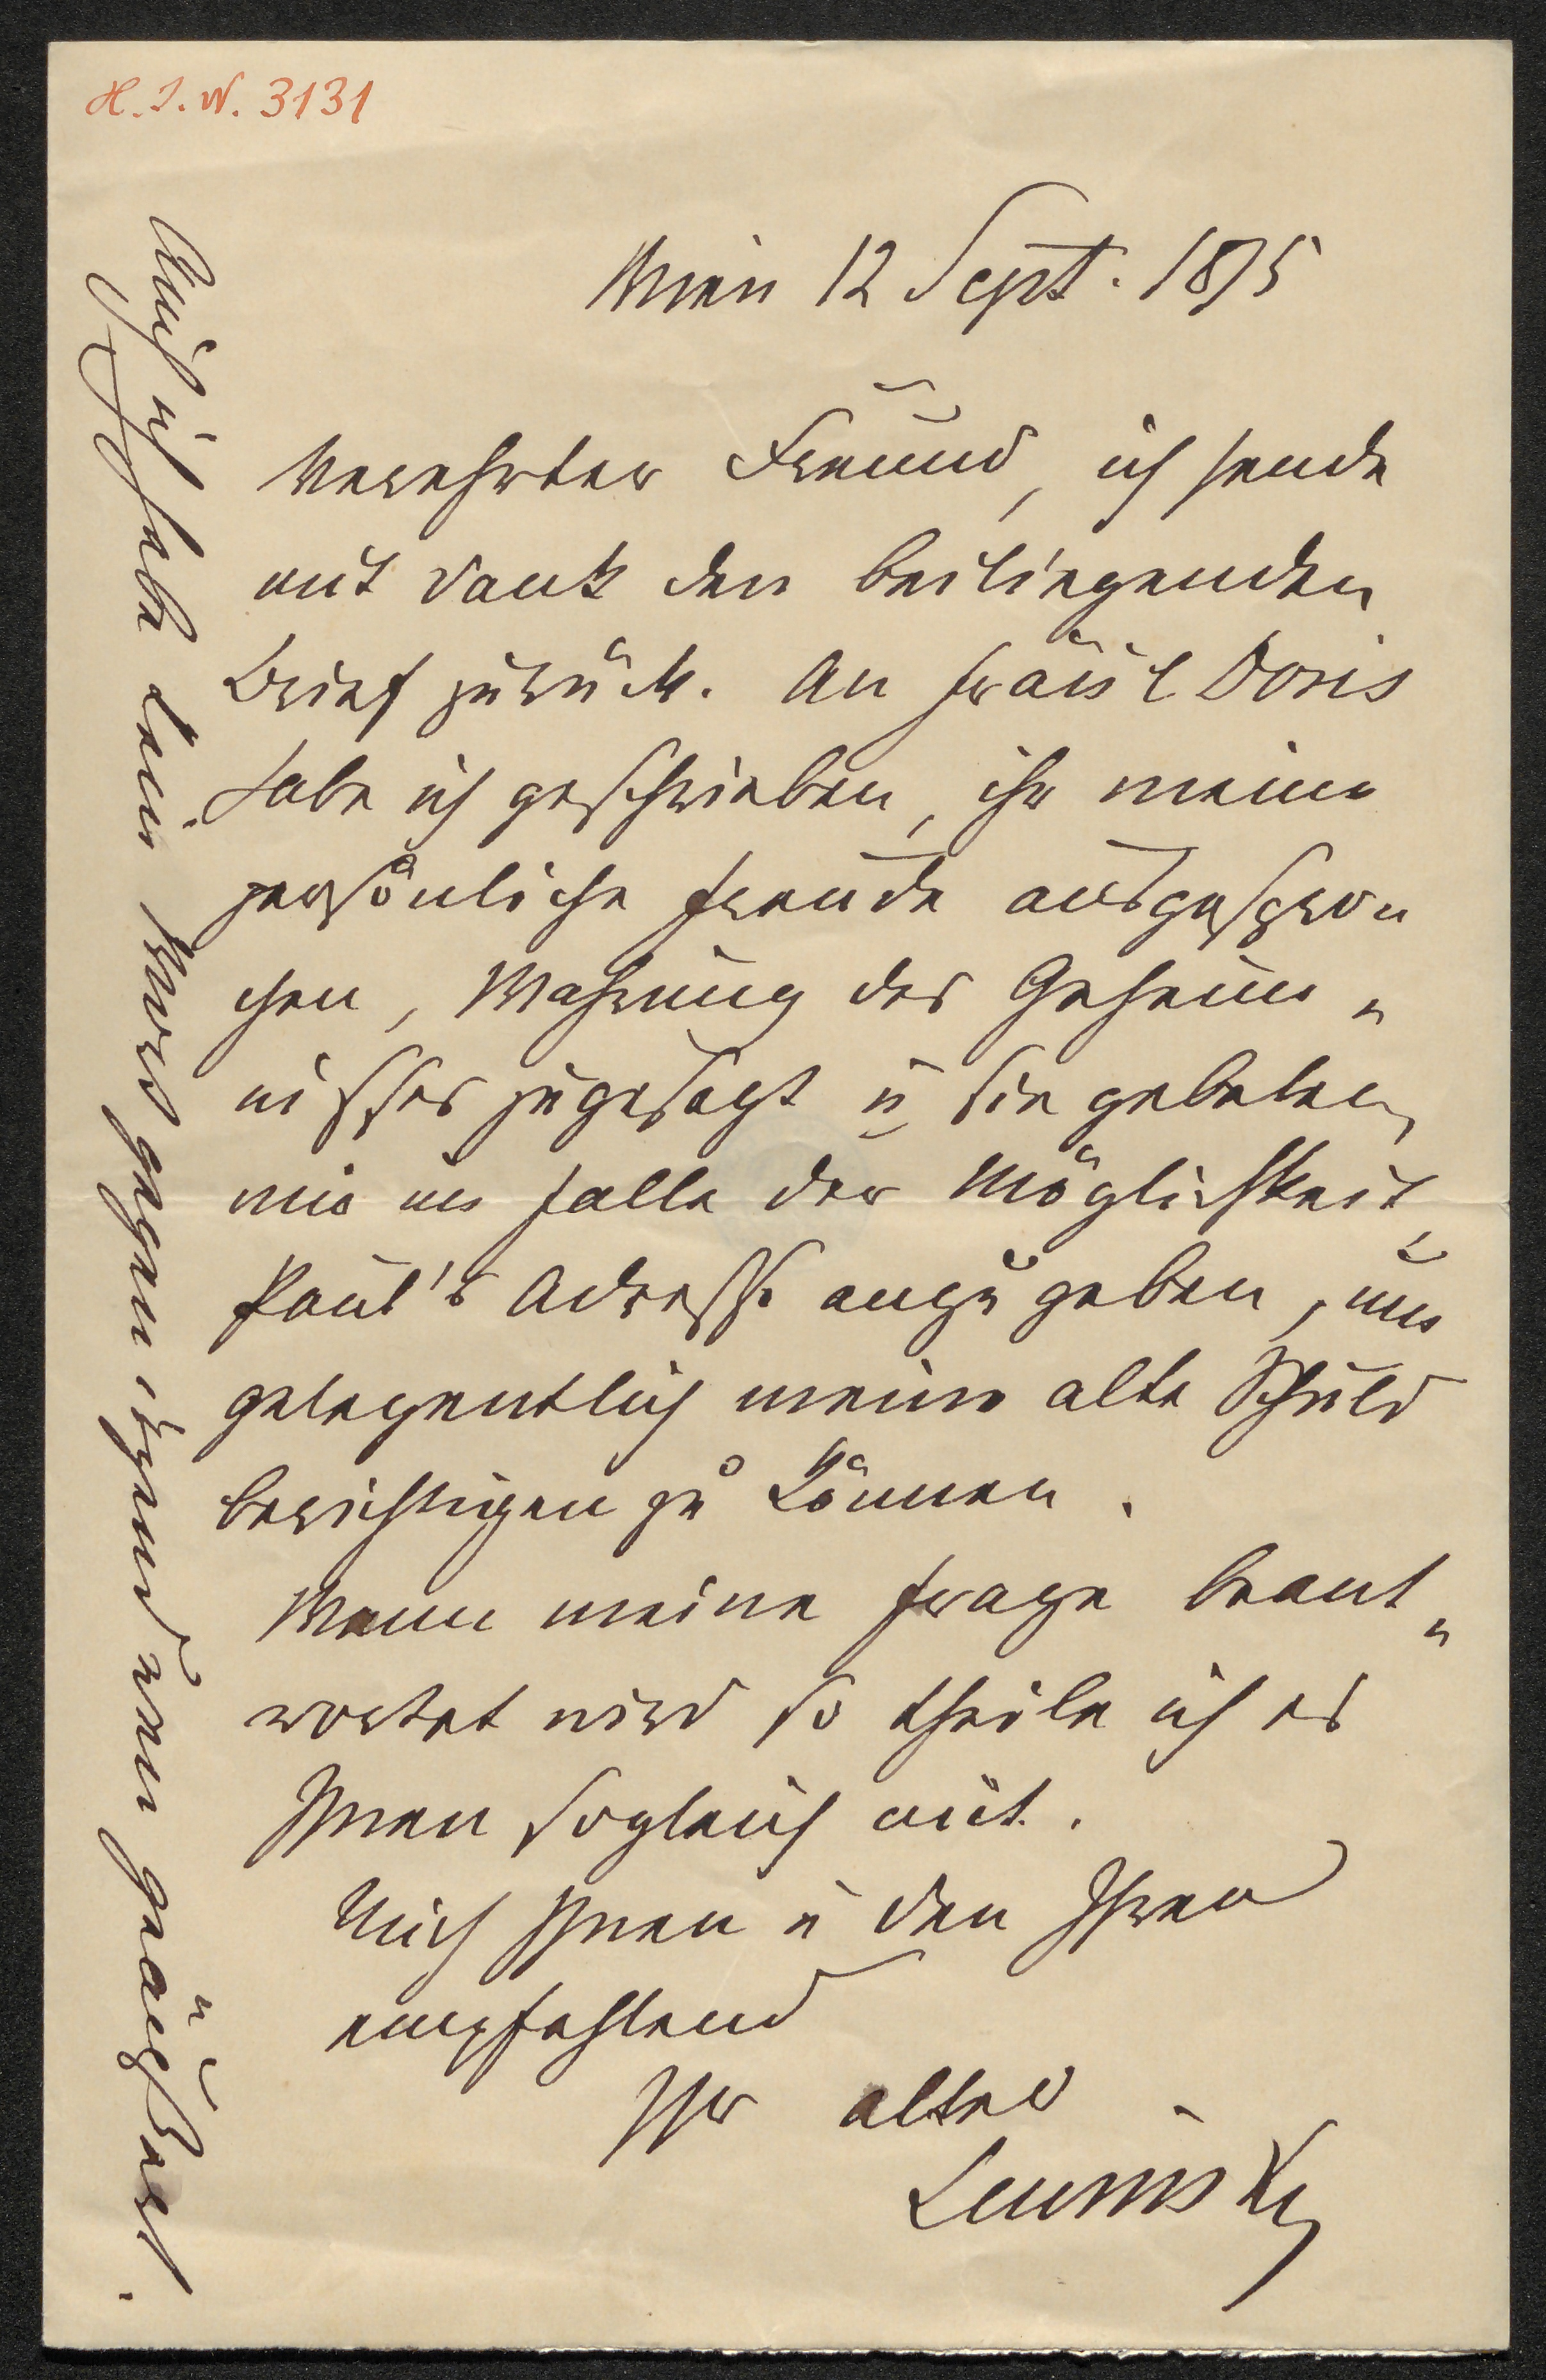 H. I. N. 3131
Wien 12 Sept. 1875
Verehrter Freund, ich sende
mit Dank den beiliegenden
Brief zurück. An Fräul Doris
habe ich geschrieben, ihr meine
persönliche Freude ausgespro„
chen, Wahrung des Geheim„
nisses zugesagt u sie gebeten,
mir im Falle der Möglichkeit
Paul's Adresse anzugeben, um
gelegentlich meine alte Schuld
berichtigen zu können.
Wenn meine Frage beant„
wortet wird so theile ich es
Ihnen sogleich mit.
Mich Ihnen u den Ihren
empfehlend
Ihr alter
Lewinsky
Auch ich habe kein Wort gegen irgend wen geäußert.